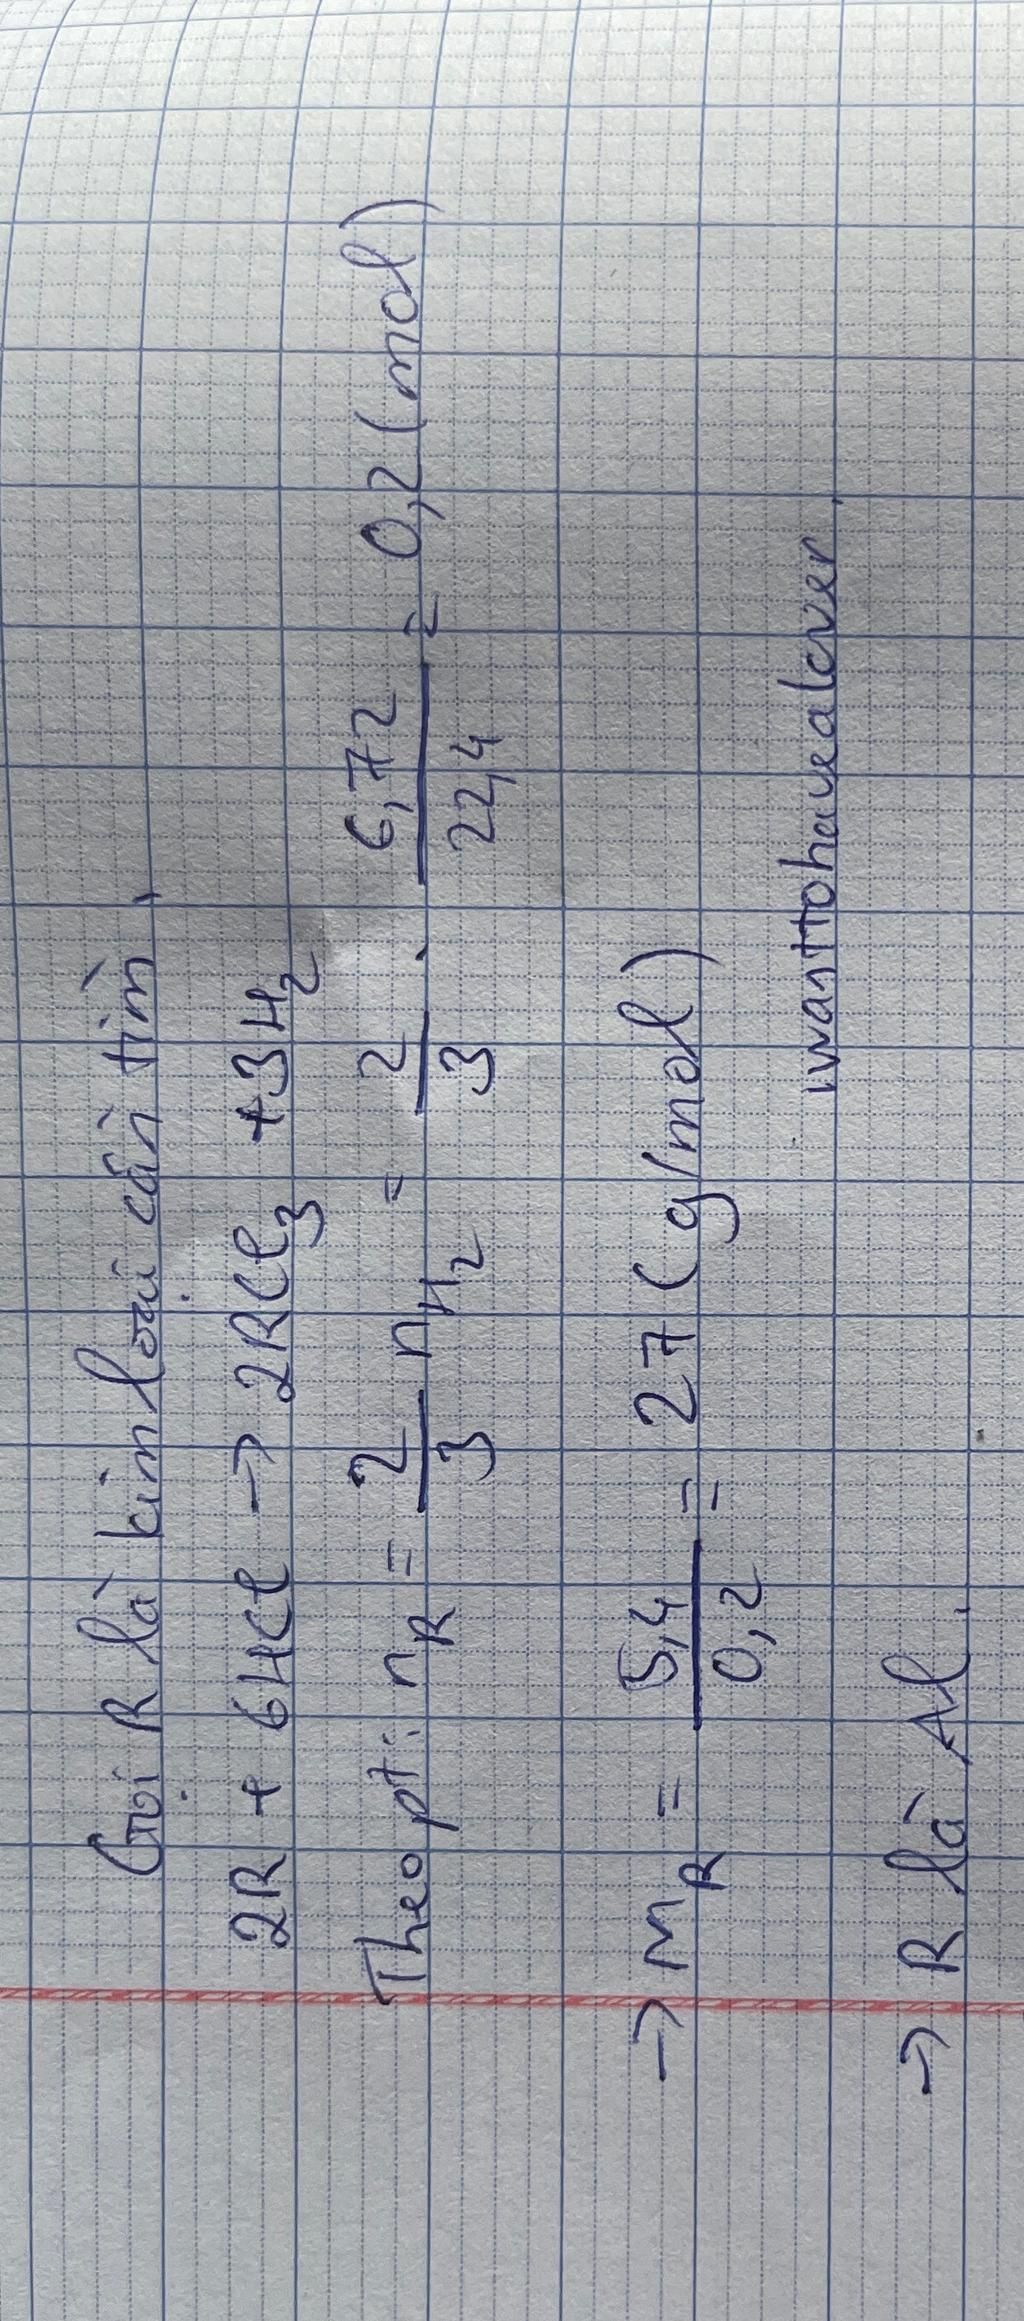 Gọi R là kim loại cần tìm.
2R + 6HCl → 2RCl₃ + 3H₂
Theo pt: n_R = 2/3 n_H₂ = 2/3 . 6,72/22,4 = 0,2 (mol)
→ M_R = 5,4/0,2 = 27 (g/mol)
iwanttohavealover.
→ R là Al.